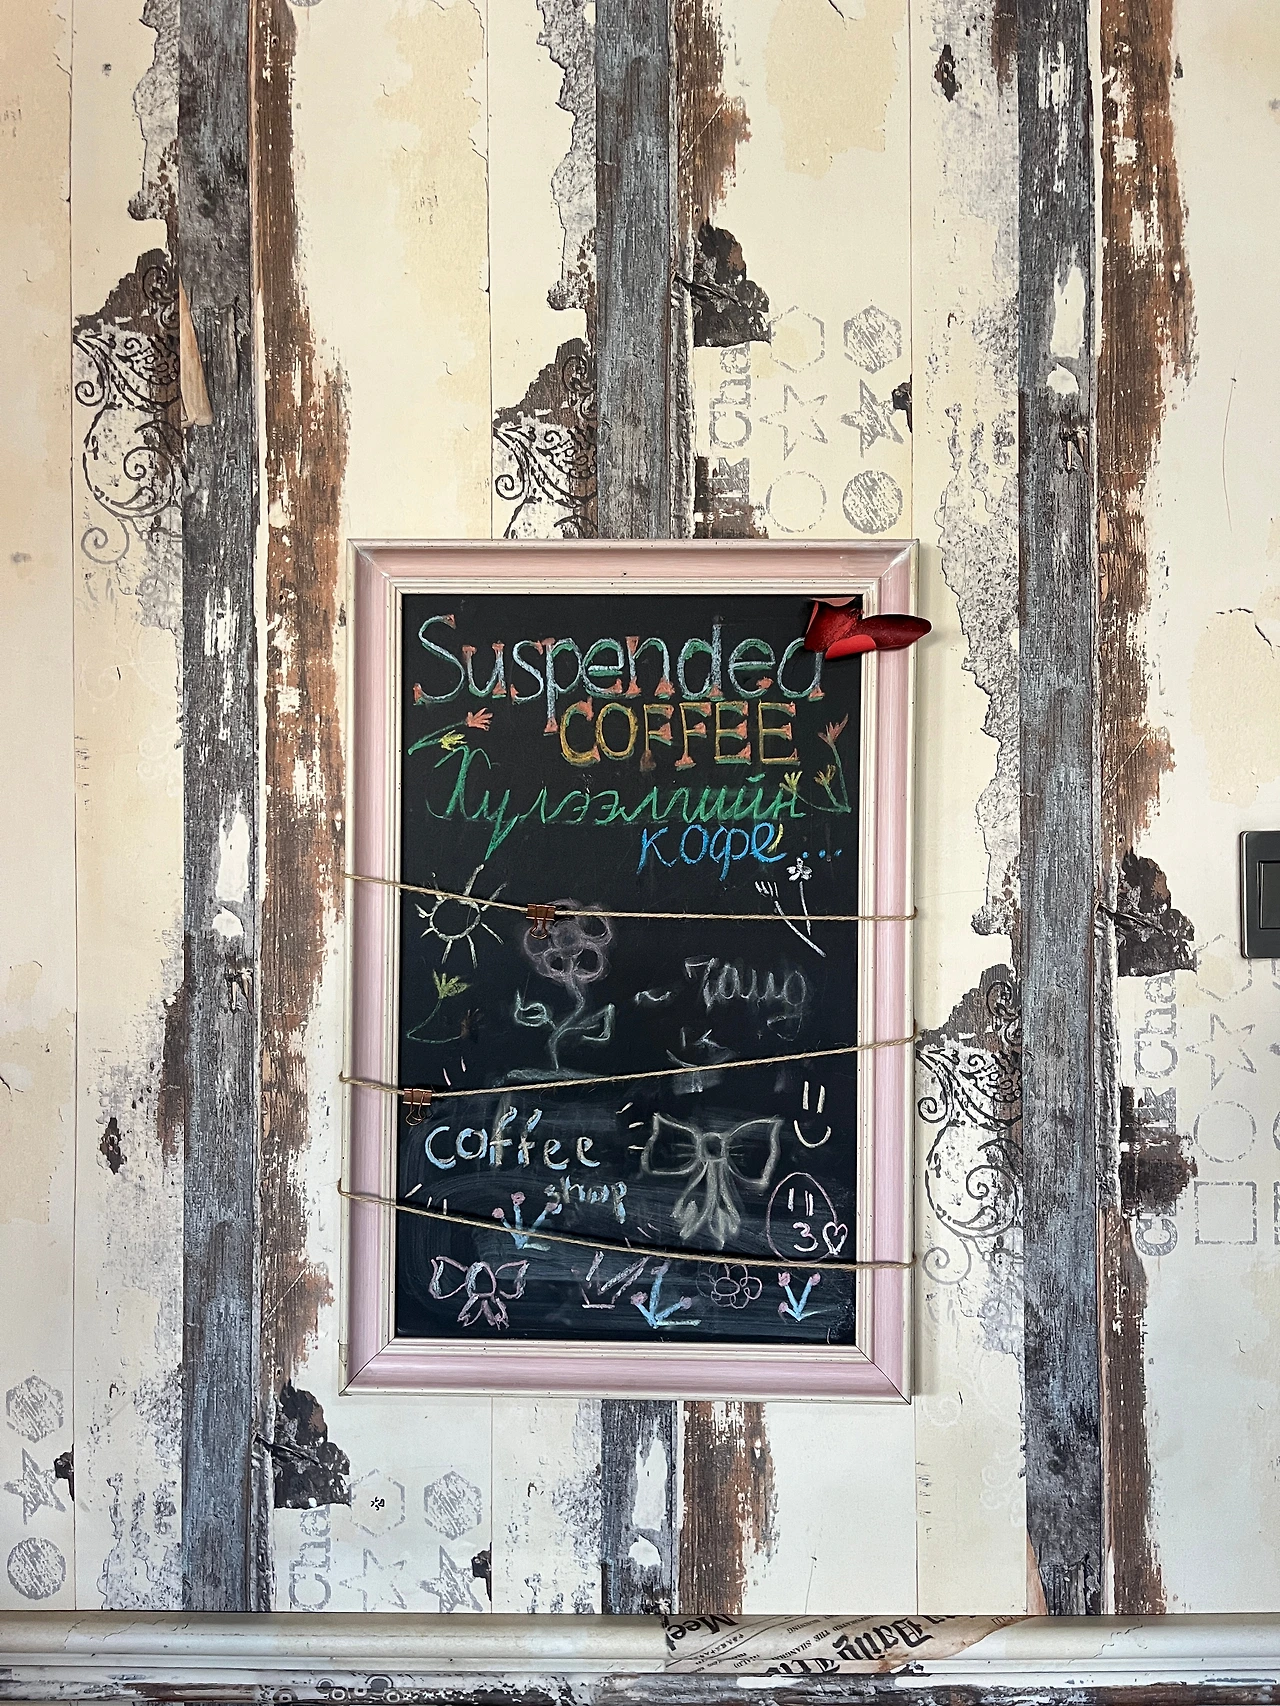 Suspended
COFFEE
Хүлээлгийн
кофе...
coffee
shop
Daily